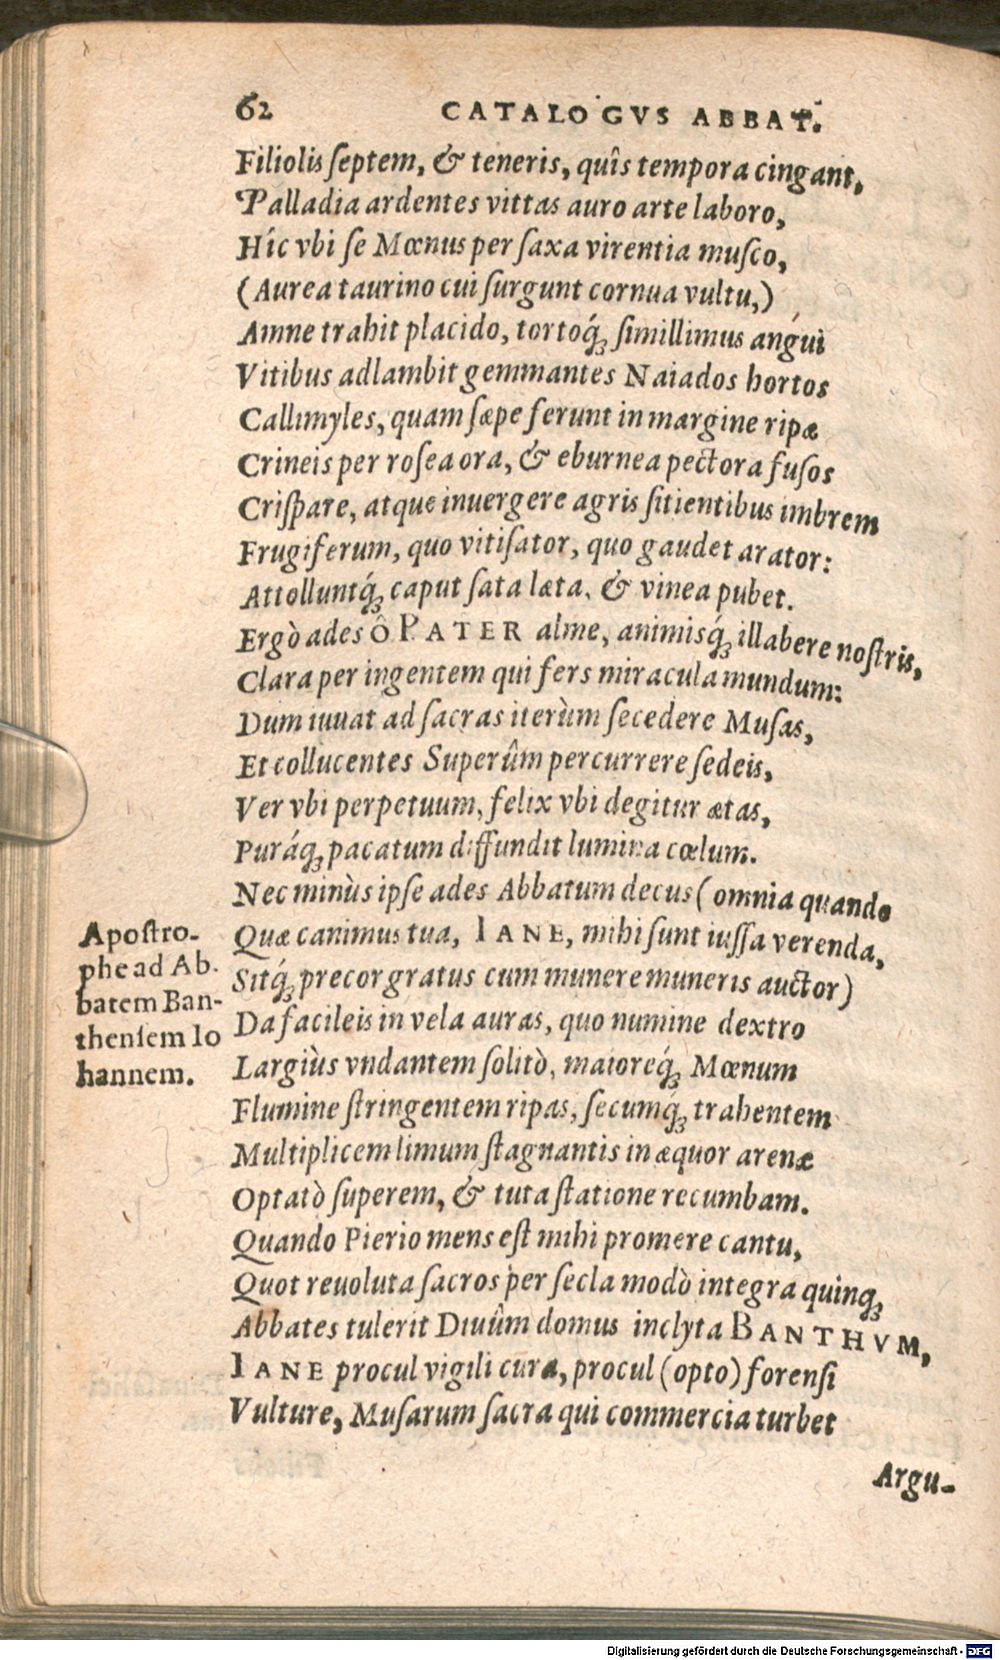 62 CATALOGVS ABBAT.
Filiolis ſeptem, & teneris, quîs tempora cingant,
Palladia ardentes vittas auro arte laboro,
Hîc vbi ſe Mœnus per ſaxa virentia muſco,
(Aurea taurino cui ſurgunt cornua vultu,)
Amne trahit placido, tortoq́; ſimillimus angui
Vitibus adlambit gemmantes Naiados hortos
Callimyles, quam ſæpe ferunt in margine ripæ
Crineis per roſea ora, & eburnea pectora fuſos
Criſpare, atque inuergere agris ſitientibus imbrem
Frugiferum, quo vitiſator, quo gaudet arator:
Attolluntq́; caput ſata læta, & vinea pubet.
Ergò ades ô PATER alme, animisq́; illabere noſtris,
Clara per ingentem qui fers miracula mundum:
Dum iuuat ad ſacras iterùm ſecedere Muſas,
Et collucentes Superûm percurrere ſedeis,
Ver vbi perpetuum, felix vbi degitur ætas,
Puráq; pacatum diffundit lumina cœlum.
Nec minùs ipſe ades Abbatum decus (omnia quando
Quæ canimus tua, IANE, mihi ſunt iuſſa verenda,
Sitq́; precor gratus cum munere muneris auctor)
Da facileis in vela auras, quo numine dextro
Largiùs vndantem ſolitò, maioreq́; Mœnum
Flumine ſtringentem ripas, ſecumq́; trahentem
Multiplicem limum ſtagnantis in æquor arenæ
Optatò ſuperem, & tuta ſtatione recumbam.
Quando Pierio mens eſt mihi promere cantu,
Quot reuoluta ſacros per ſecla modò integra quinq;
Abbates tulerit Diuûm domus inclyta BANTHVM,
IANE procul vigili cura, procul (opto) forenſi
Vulture, Muſarum ſacra qui commercia turbet
Argu-
Apoſtro-
phe ad Ab.
batem Ban-
thenſem Io
hannem.
Digitalisierung gefördert durch die Deutsche Forschungsgemeinschaft - DFG